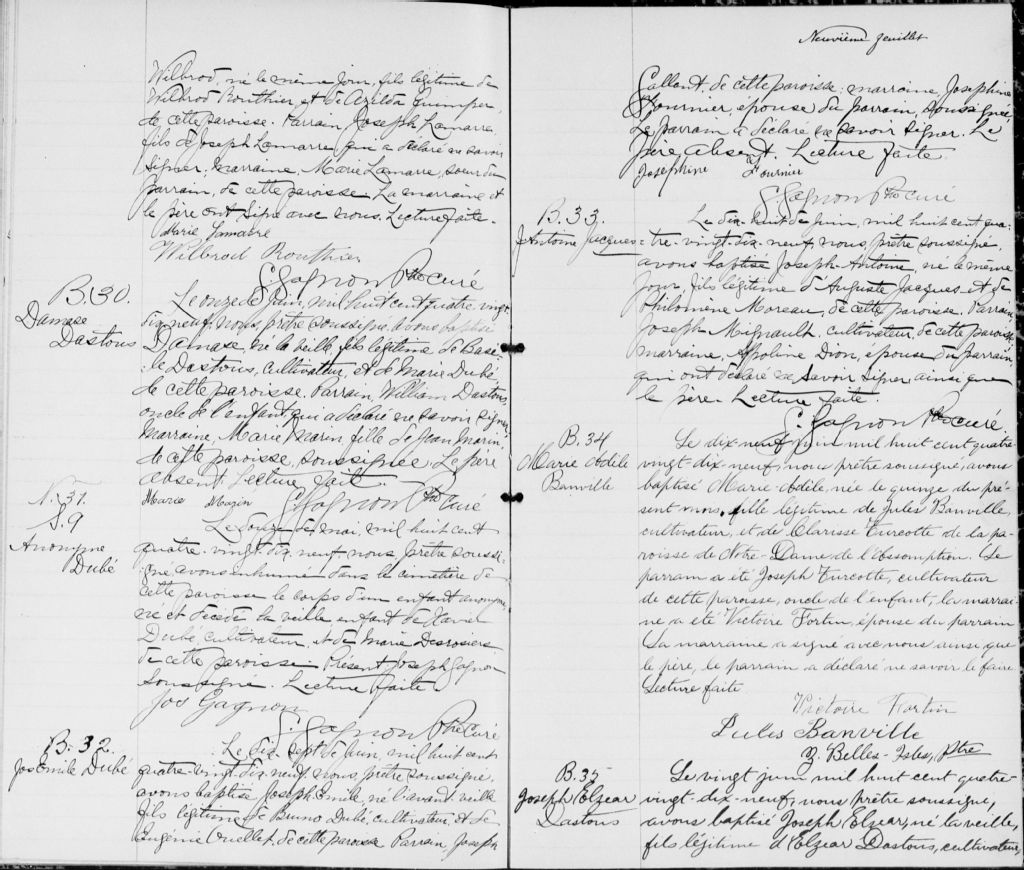 Wilbrod, né le même jour, fils légitime de
Wilbrod Routhier, et de Azilda Quimper,
de cette paroisse. Parrain Joseph Lamarre,
fils de Joseph Lamarre qui a déclaré ne savoir
signer, marraine, Marie Lamarre, sœur du
parrain, de cette paroisse. La marraine et
le père ont signé avec nous. Lecture faite.
Marie Lamarre
Wilbrod Routhier
G Gagnon Ptre curé
B. 30.
Damase
Dastous
Le onze de juin, mil huit cent quatre-vingt
dix-neuf, nous, prêtre soussigné, avons baptisé
Damase, né la veille, fils légitime de Basi-
le Dastous, cultivateur, et de Marie Dubé,
de cette paroisse. Parrain, William Dastous,
oncle de l'enfant, qui a déclaré ne savoir signer,
Marraine, Marie Marin, fille de Jean Marin,
de cette paroisse, soussignée. Le père
absent. Lecture faite.
Marie Marin
G Gagnon Ptre Curé
N. 31.
S. 9
Anonyme
Dubé
Le douze de mai, mil huit cent
quatre-vingt-dix-neuf, nous prêtre soussi-
gné avons enhumé dans le cimetière de
cette paroisse le corps d'un enfant anonyme,
né et décédé la veille enfant de
Dubé, cultivateur, et de Marie Desrosiers
de cette paroisse. Présent Joseph Gagnon
soussigné. Lecture faite.
Jos Gagnon
G. Gagnon Ptre Curé
B. 32.
Jos Emile Dubé
Le dix-sept de juin, mil huit cent
quatre-vingt-dix-neuf, nous, prêtre soussigné,
avons baptisé Joseph Emile, né l'avant-veille
fils légitime de Bruno Dubé, cultivateur, et de
Eugénie Ouellet, de cette paroisse. Parrain, Joseph
Neuvième feuillet
Gallant, de cette paroisse; marraine, Josephine
Fournier, épouse du parrain, soussignée,
Le parrain a déclaré ne savoir signer. Le
père absent. Lecture faite.
Josephine Fournier
G Gagnon Ptre curé
B. 33.
J Antoine Jacques
Le dix-huit de juin, mil huit cent qua-
tre-vingt-dix-neuf, nous, prêtre soussigné,
avons baptisé Joseph-Antoine, né le même
jour, fils légitime d'Auguste Jacques et de
Philomène Moreau, de cette paroisse. Parrain,
Joseph Mignault, cultivateur, de cette paroisse,
marraine, Appoline Dion, épouse du parrain,
qui ont déclaré ne savoir signer ainsi que
le père. Lecture faite.
G. Gagnon Ptre curé.
B. 34
Marie Adèle
Banville
Le dix-neuf juin mil huit cent quatre-
vingt-dix-neuf, nous prêtre soussigné, avons
baptisé Marie-Adèle, née le quinze du pré-
sent mois, fille légitime de Jules Banville,
cultivateur, et de Clarisse Turcotte de la pa-
roisse de Notre-Dame de l'Assomption. Le
parrain a été Joseph Turcotte, cultivateur
de cette paroisse, oncle de l'enfant, la marrai-
ne a été Victoire Fortin, épouse du parrain
La marraine a signé avec nous ainsi que
le père, le parrain a déclaré ne savoir le faire
Lecture faite
Victoire Fortin
Jules Banville
Z. Belles-Isles, Ptre
B. 35
Joseph Elzéar
Dastous
Le vingt juin mil huit cent quatre-
vingt-dix-neuf, nous prêtre soussigné,
avons baptisé Joseph Elzear, né la veille,
fils légitime d'Elzear Dastous, cultivateur,